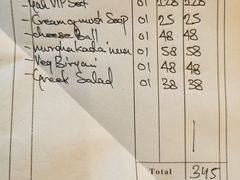 - VIP Set 01 128 128
- Cream of must Soup 01 25 25
- cheese Ball 01 48 48
- murgha kadai new 01 58 58
- Veg Biryani 01 48 48
- Greek Salad 01 38 38
Total 345